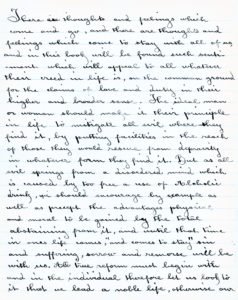 There is thoughts and feelings which
come and go, and there are thoughts and
feelings which come to stay with all of us,
and in this book will be found such senti-
ment which will appeal to all whatever
their creed in life is, on the common ground
for the claims of love and duty in their
higher and broader sense. The ideal man
or woman should make it their principle
in life to mitigate all evil where they
find it, by putting facilities in the reach
of those they would rescue from depravity
in whatever form they find it. But as all
evil springs from a disordered mind which
is caused by too free a use of Alcoholic
drink, we should encourage by example as
well as precept the advantage physical
and moral to be gained by the total
abstaining from it, and until that time
in ones life comes, "and comes to stay" sin
and suffering, sorrow and remorse will be
with us. All true reform must begin with
and in the individual therefore let us look to
it that we lead a noble life, otherwise our